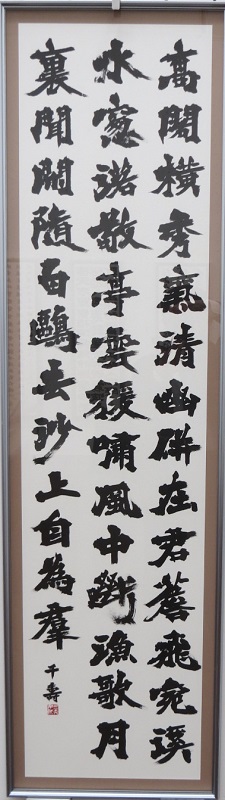 高閣橫秀氣清幽併在君簷飛宛溪
水窻落敬亭雲猨嘯風中斷漁歌月
裏聞閑隨白鷗去沙上自為羣
千壽